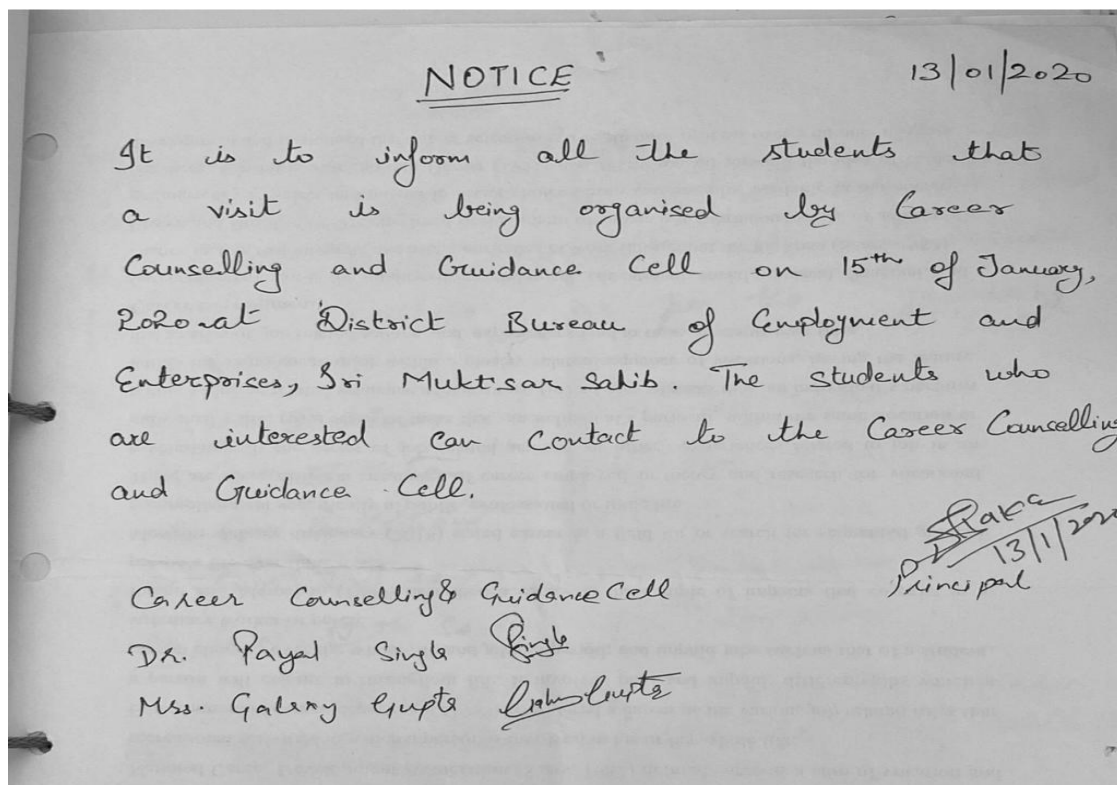 NOTICE 13/01/2020
It is to inform all the students that
a visit is being organised by Career
Counselling and Guidance Cell on 15th of January,
2020 at District Bureau of Employment and
Enterprises, Sri Muktsar Sahib The students who
are interested can contact to the Career Councelling
and Guidance Cell.
13/1/2020
Principal
Career Counselling & Guidance Cell
Dr. Payal Singla Singla
Mrs. Galaxy Gupta Gupta